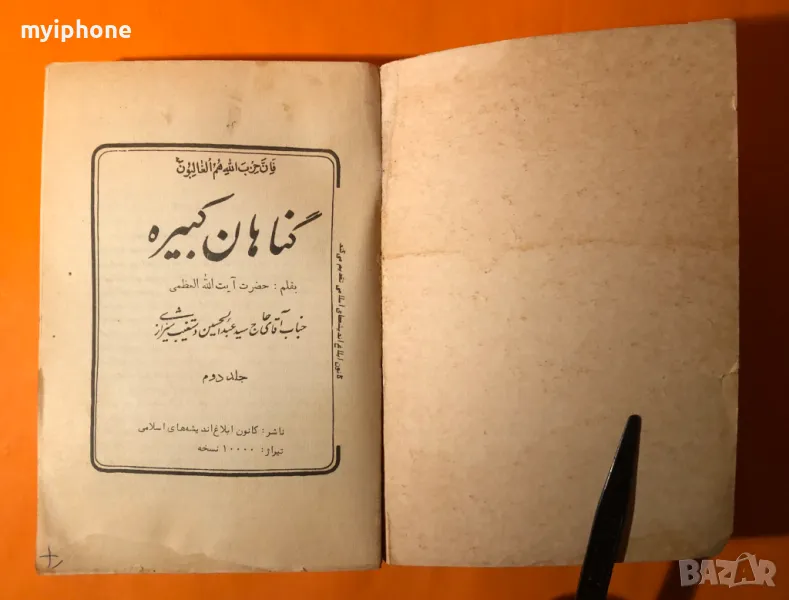 myiphone
فَاِنَّ حِزبَ اللّٰهِ هُمُ الْغَالِبُونَ
گناهان کبیره
بقلم : حضرت آیت الله العظمی
جناب آقای حاج سید عبدالحسین دستغیب شیرازی
جلد دوم
ناشر: کانون ابلاغ اندیشه‌های اسلامی
تیراژ: ۱۰۰۰۰ نسخه
کانون ابلاغ اندیشه‌های اسلامی تقدیم می‌کند
BAZAR